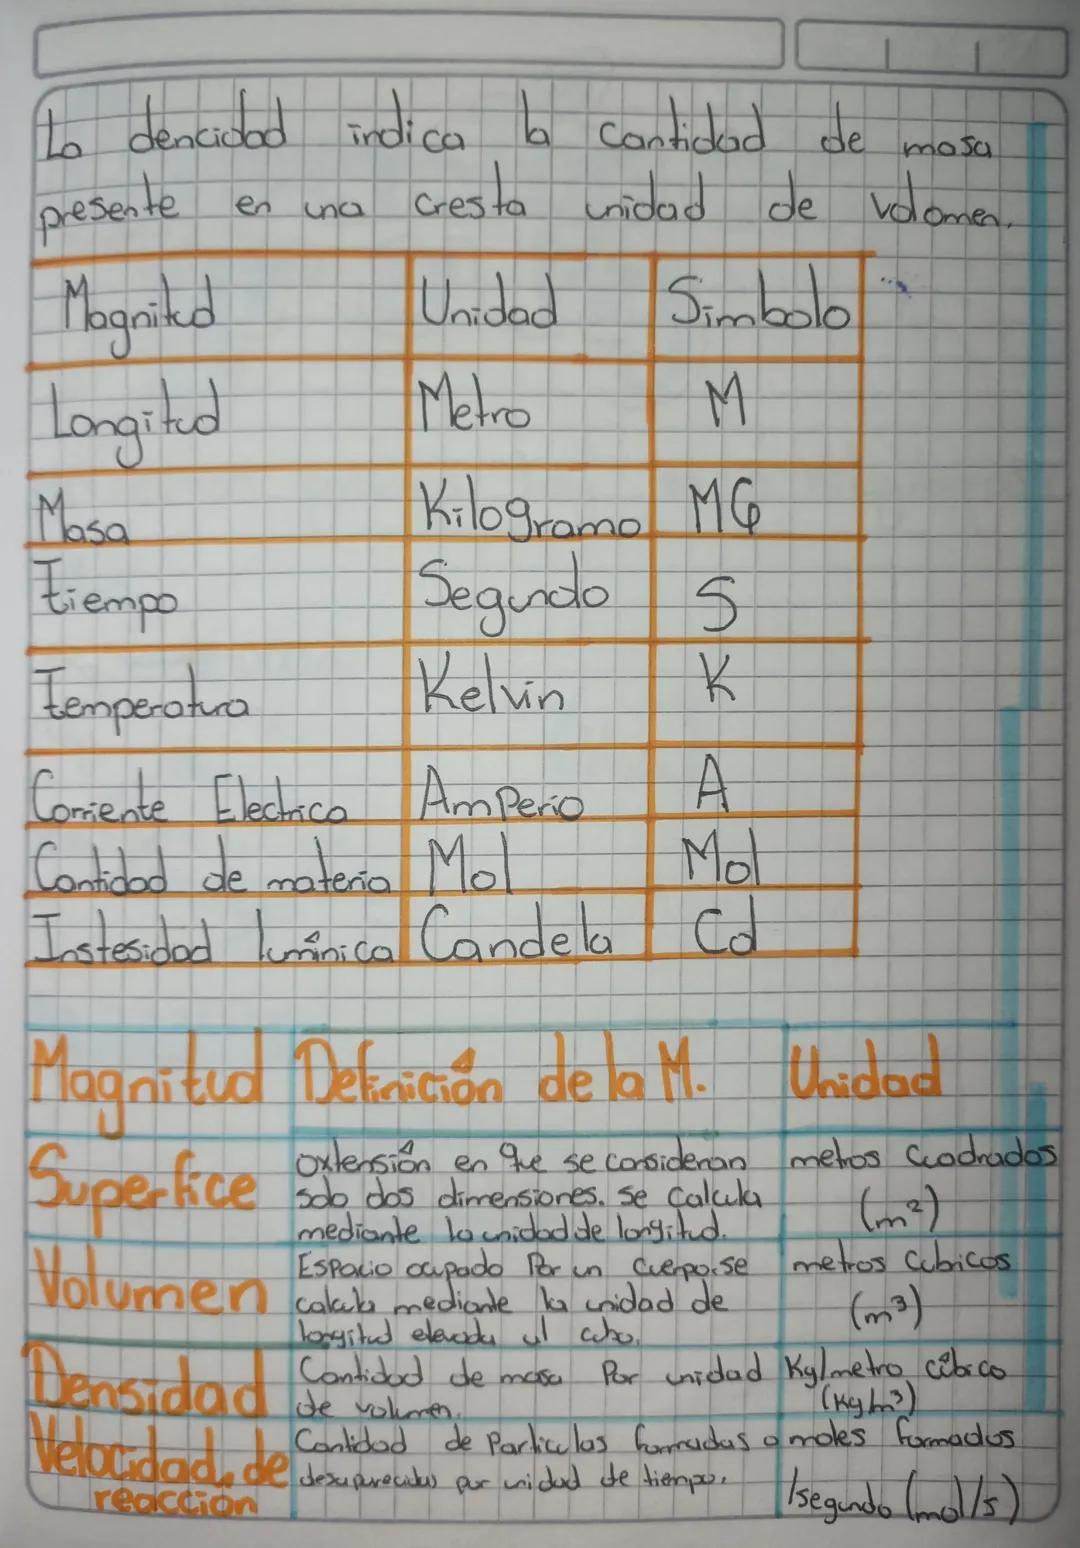 La dencidad indica la cantidad de masa
presente en una cresta unidad de volomen.
Magnitud Unidad Simbolo
Longitud Metro M
Masa Kilogramo MG
Tiempo Segundo S
Temperatura Kelvin K
Corriente Electrica Amperio A
Cantidad de materia Mol Mol
Instesidad lumínica Candela Cd
Magnitud Definición de la M. Unidad
Superfice
extensión en que se consideran
solo dos dimensiones. se calcula
mediante la unidad de longitud.
metros Cuadrados
(m²)
Volumen
Espacio ocupado Por un cuerpo.se
calcula mediante la unidad de
longitud elevada al cubo.
metros Cubicos
(m³)
Densidad
Cantidad de masa Por unidad
de volumen.
Kg/metro cúbico
(Kg/m³)
Velocidad de
reacción
Cantidad de Particulas formadas o
desaparecidas por unidad de tiempo.
moles formados
/segundo (mol/s)